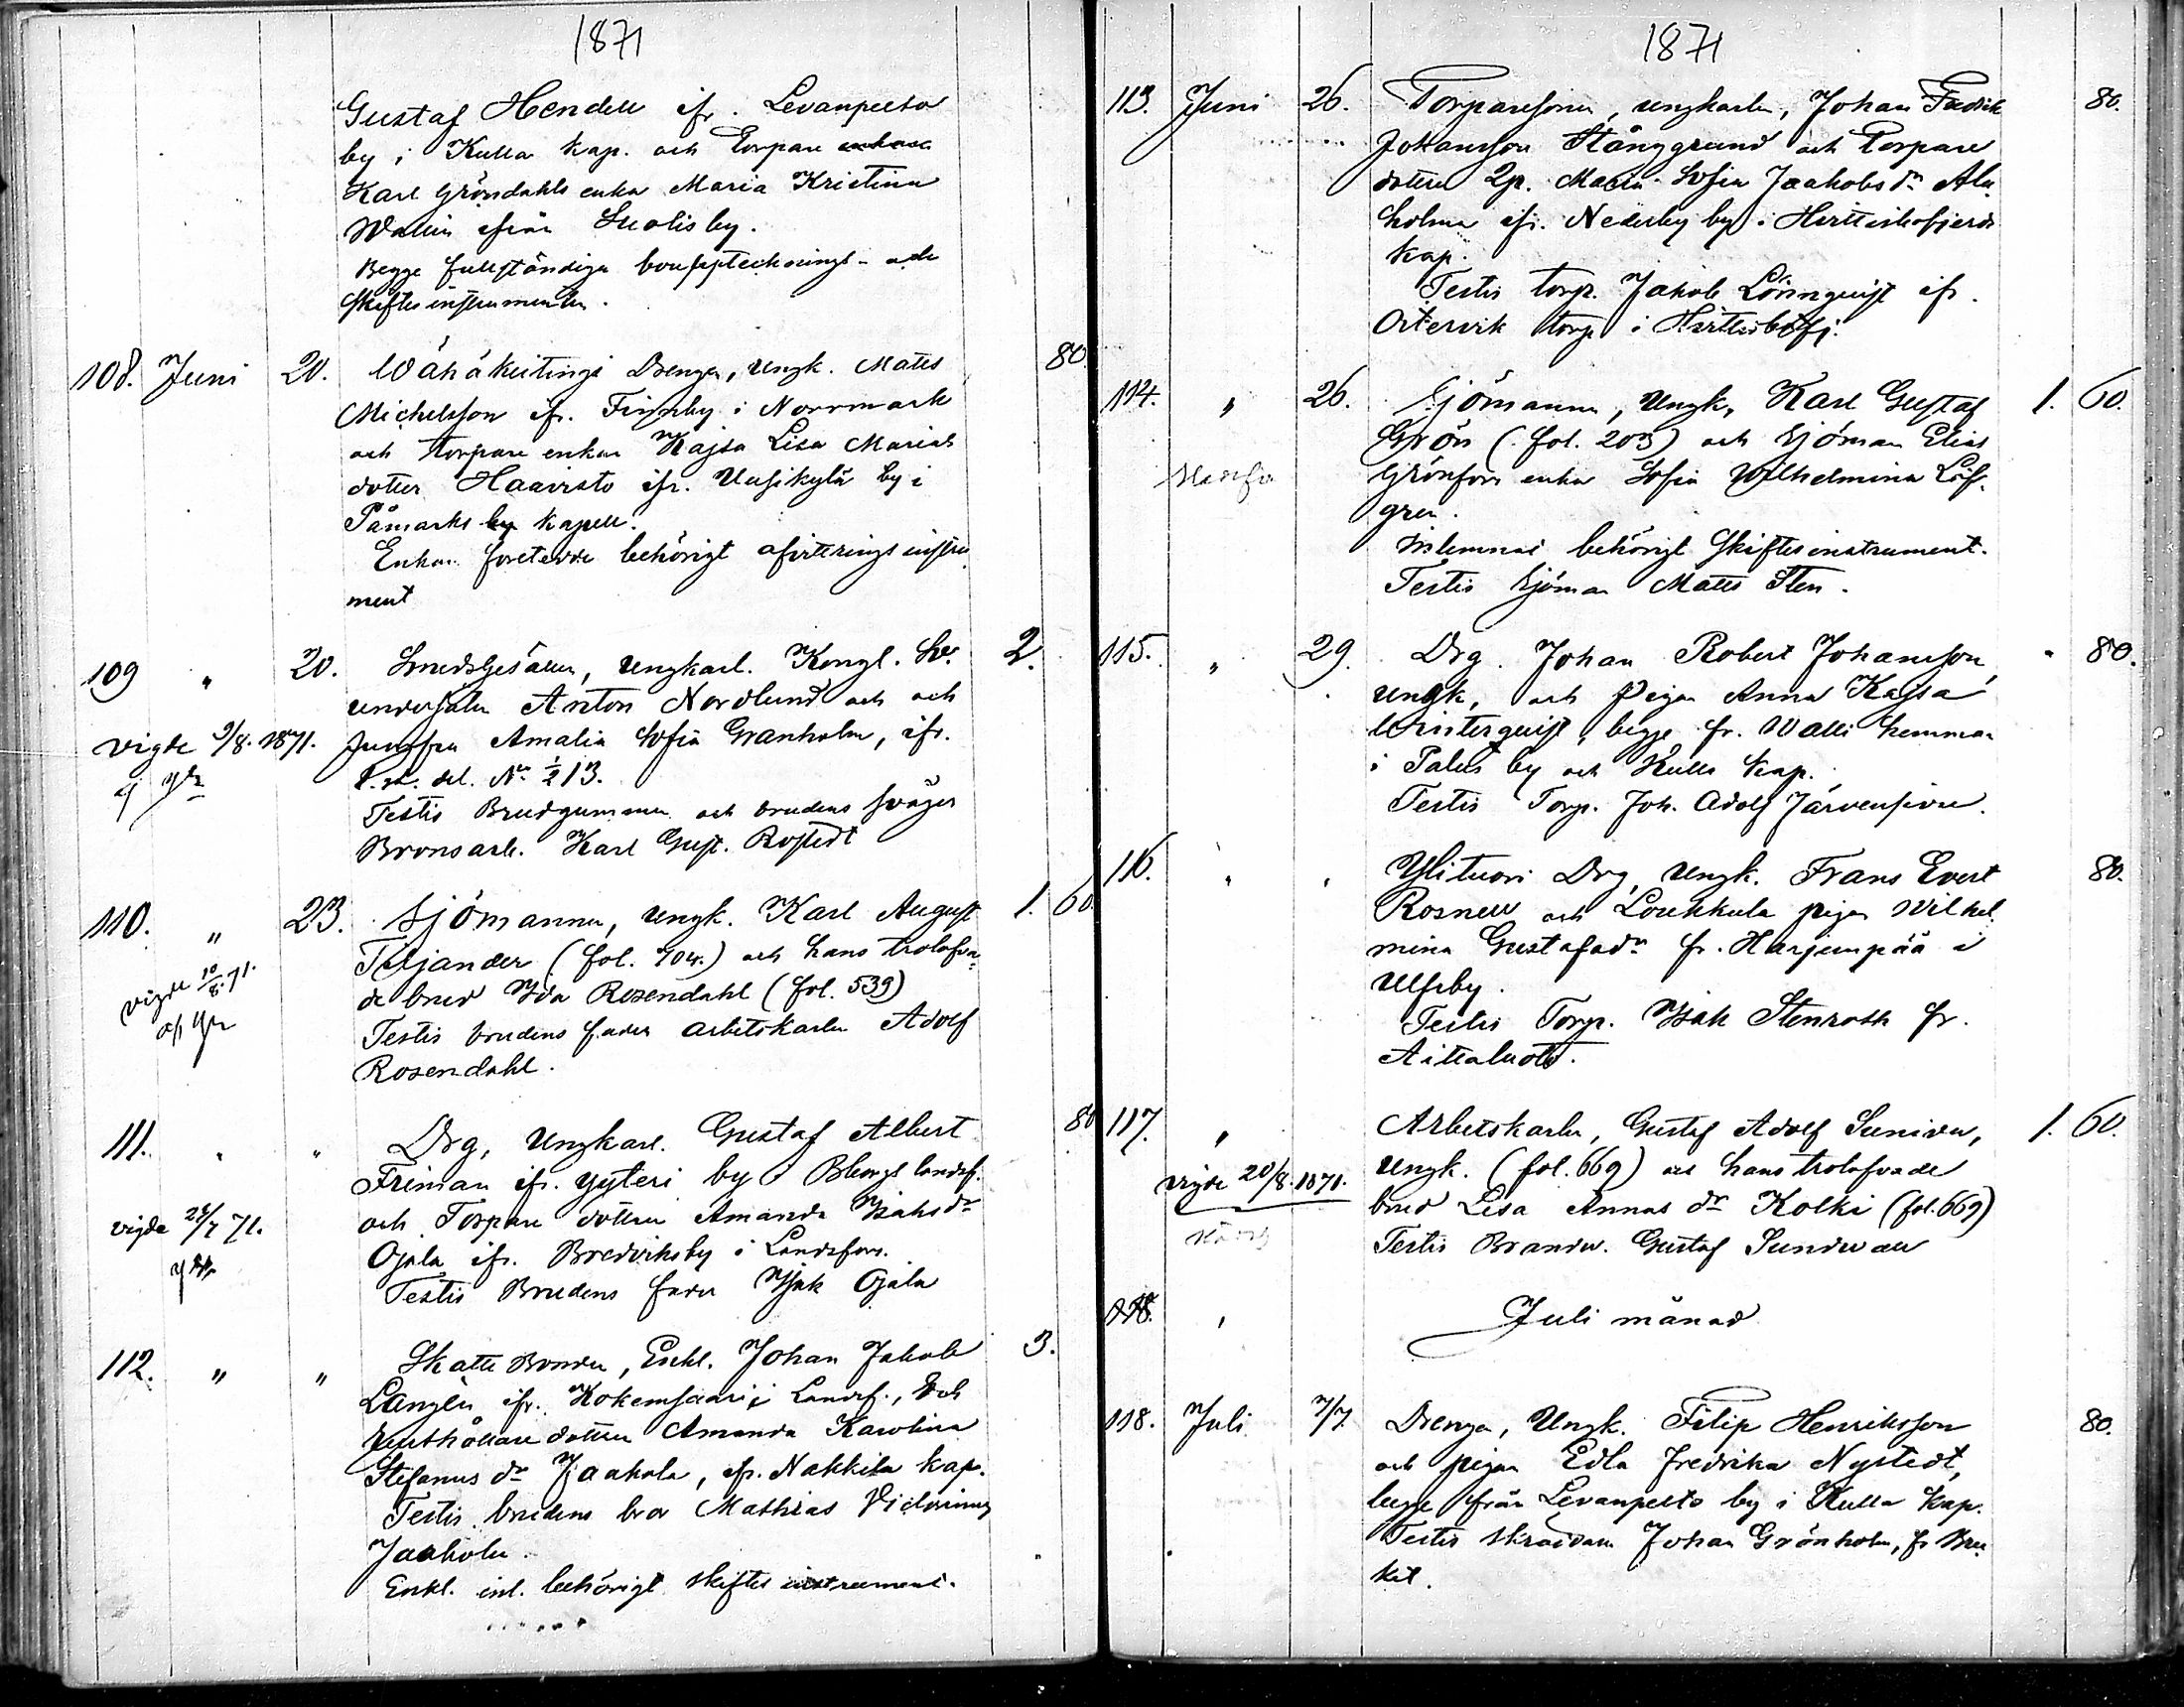 1871
Gustaf Hendell ifr. Levanpelto
by i Kulla kap. och Torpare enkan
Karl Gröndahls enka Maria Kristina
Wallin ifrån Suolisby.
Begge fullständiga bouppteknings- och
skiftesinstrumenter.
108. Juni 20. Wähäkiitingi Drengen, ungk. Mats 80.
Michelsson ifr. Finnby i Norrmark
och torpare enkan Kajsa Lisa Marias
dotter Haavisto ifr. Uusikylä by i
Påmarks by kapell.
Enkan företedde behörigt afvittringsinstru
ment
109 " 20. Smedsgesällen, ungkarl. Kongl. Sv. 2.
undersåten Anton Nordlund och och
vigde 9/8. 1871. Jungfru Amalia Sofia Granholm, ifr.
del. No ½ 13.
Testis Brudgummen och brudens svåger
Bronsarb. Karl Gust. Rostedt
110. " 23. Sjömannen, ungk. Karl August 1. 60
Teljander (fol. 704.) och hans trolofva-
vigde 10/8. 71. de brud Ida Rosendahl (fol. 539)
Testis brudens fader arbetskarlen Adolf
Rosendahl.
111. " " Drg, Ungkarl. Gustaf Albert 80
Friman ifr. Yyteri by i Bbergs landsf.
vigde 28/7 71. och Torpare dottren Amanda Isaksdr
Ojala ifr. Bredviksby i Landsförs.
Testis Brudens fader Isak Ojala
112. " " Skatte Bonden, Enkl. Johan Jakob 3.
Langén ifr. Kokemsaari i Landsf., och
Rusthållare dottren Amanda Karolina
Stefanus dr Jaakola, ifr. Nakkila kap.
Testis brudens bror Mathias Victorinus
Jaakola.
Enkl. inl. behörigt skiftes instrument.
1871
113. Juni 26. Torparesonen, ungkarlen, Johan Fredrik 80.
Johansson Stånggrund och Torpare
dottren Maria Sofia Jaakobs dr Ala
holma ifr. Nederby by i Hvittisbofjerds
kap.
Testis torp. Jakob Lönnqvist ifr.
Ostervik torp i Hvittisbofj.
114. " 26. Sjömannen, Ungk, Karl Gustaf 1. 60.
Grön (fol. 203) och Sjöman Elias
Grönfors enka Sofia Wilhelmina Löf-
gren.
Inlemnat behörigt skiftesinstrument.
Testis Sjöman Mats Sten.
115. " 29. Drg. Johan Robert Johansson, " 80.
ungk, och Pigan Anna Kajsa
Winterqvist, begge fr. Walli hemman
i Palus by och Kulla kap.
Testis Torp. Joh. Adolf Järvensivu.
116. " " Ylituori Drg, Ungk. Frans Evert 80.
Rosnell och Loukkula pigan Wilhel
mina Gustafsdr fr. Harjunpää i
Ulfsby.
Testis Torp. Isak Stenroth fr.
Aittaluoto.
117. " Arbetskarlen, Gustaf Adolf Suniven, 1. 60.
Ungk. (fol. 669) och hans trolofvade
vigde 20/8. 1871. brud Lisa Annas dr Kolki (fol. 669)
Testis Brandv. Gustaf Sundwall
118. " Juli månad
118. Juli 7/7. Drengen, Ungk. Filip Henriksson 80.
och pigan Edla Fredrika Nystedt,
begge från Levanpelto by i Kulla kap.
Testis skräddaren Johan Grönholm, fr Bru
ket.